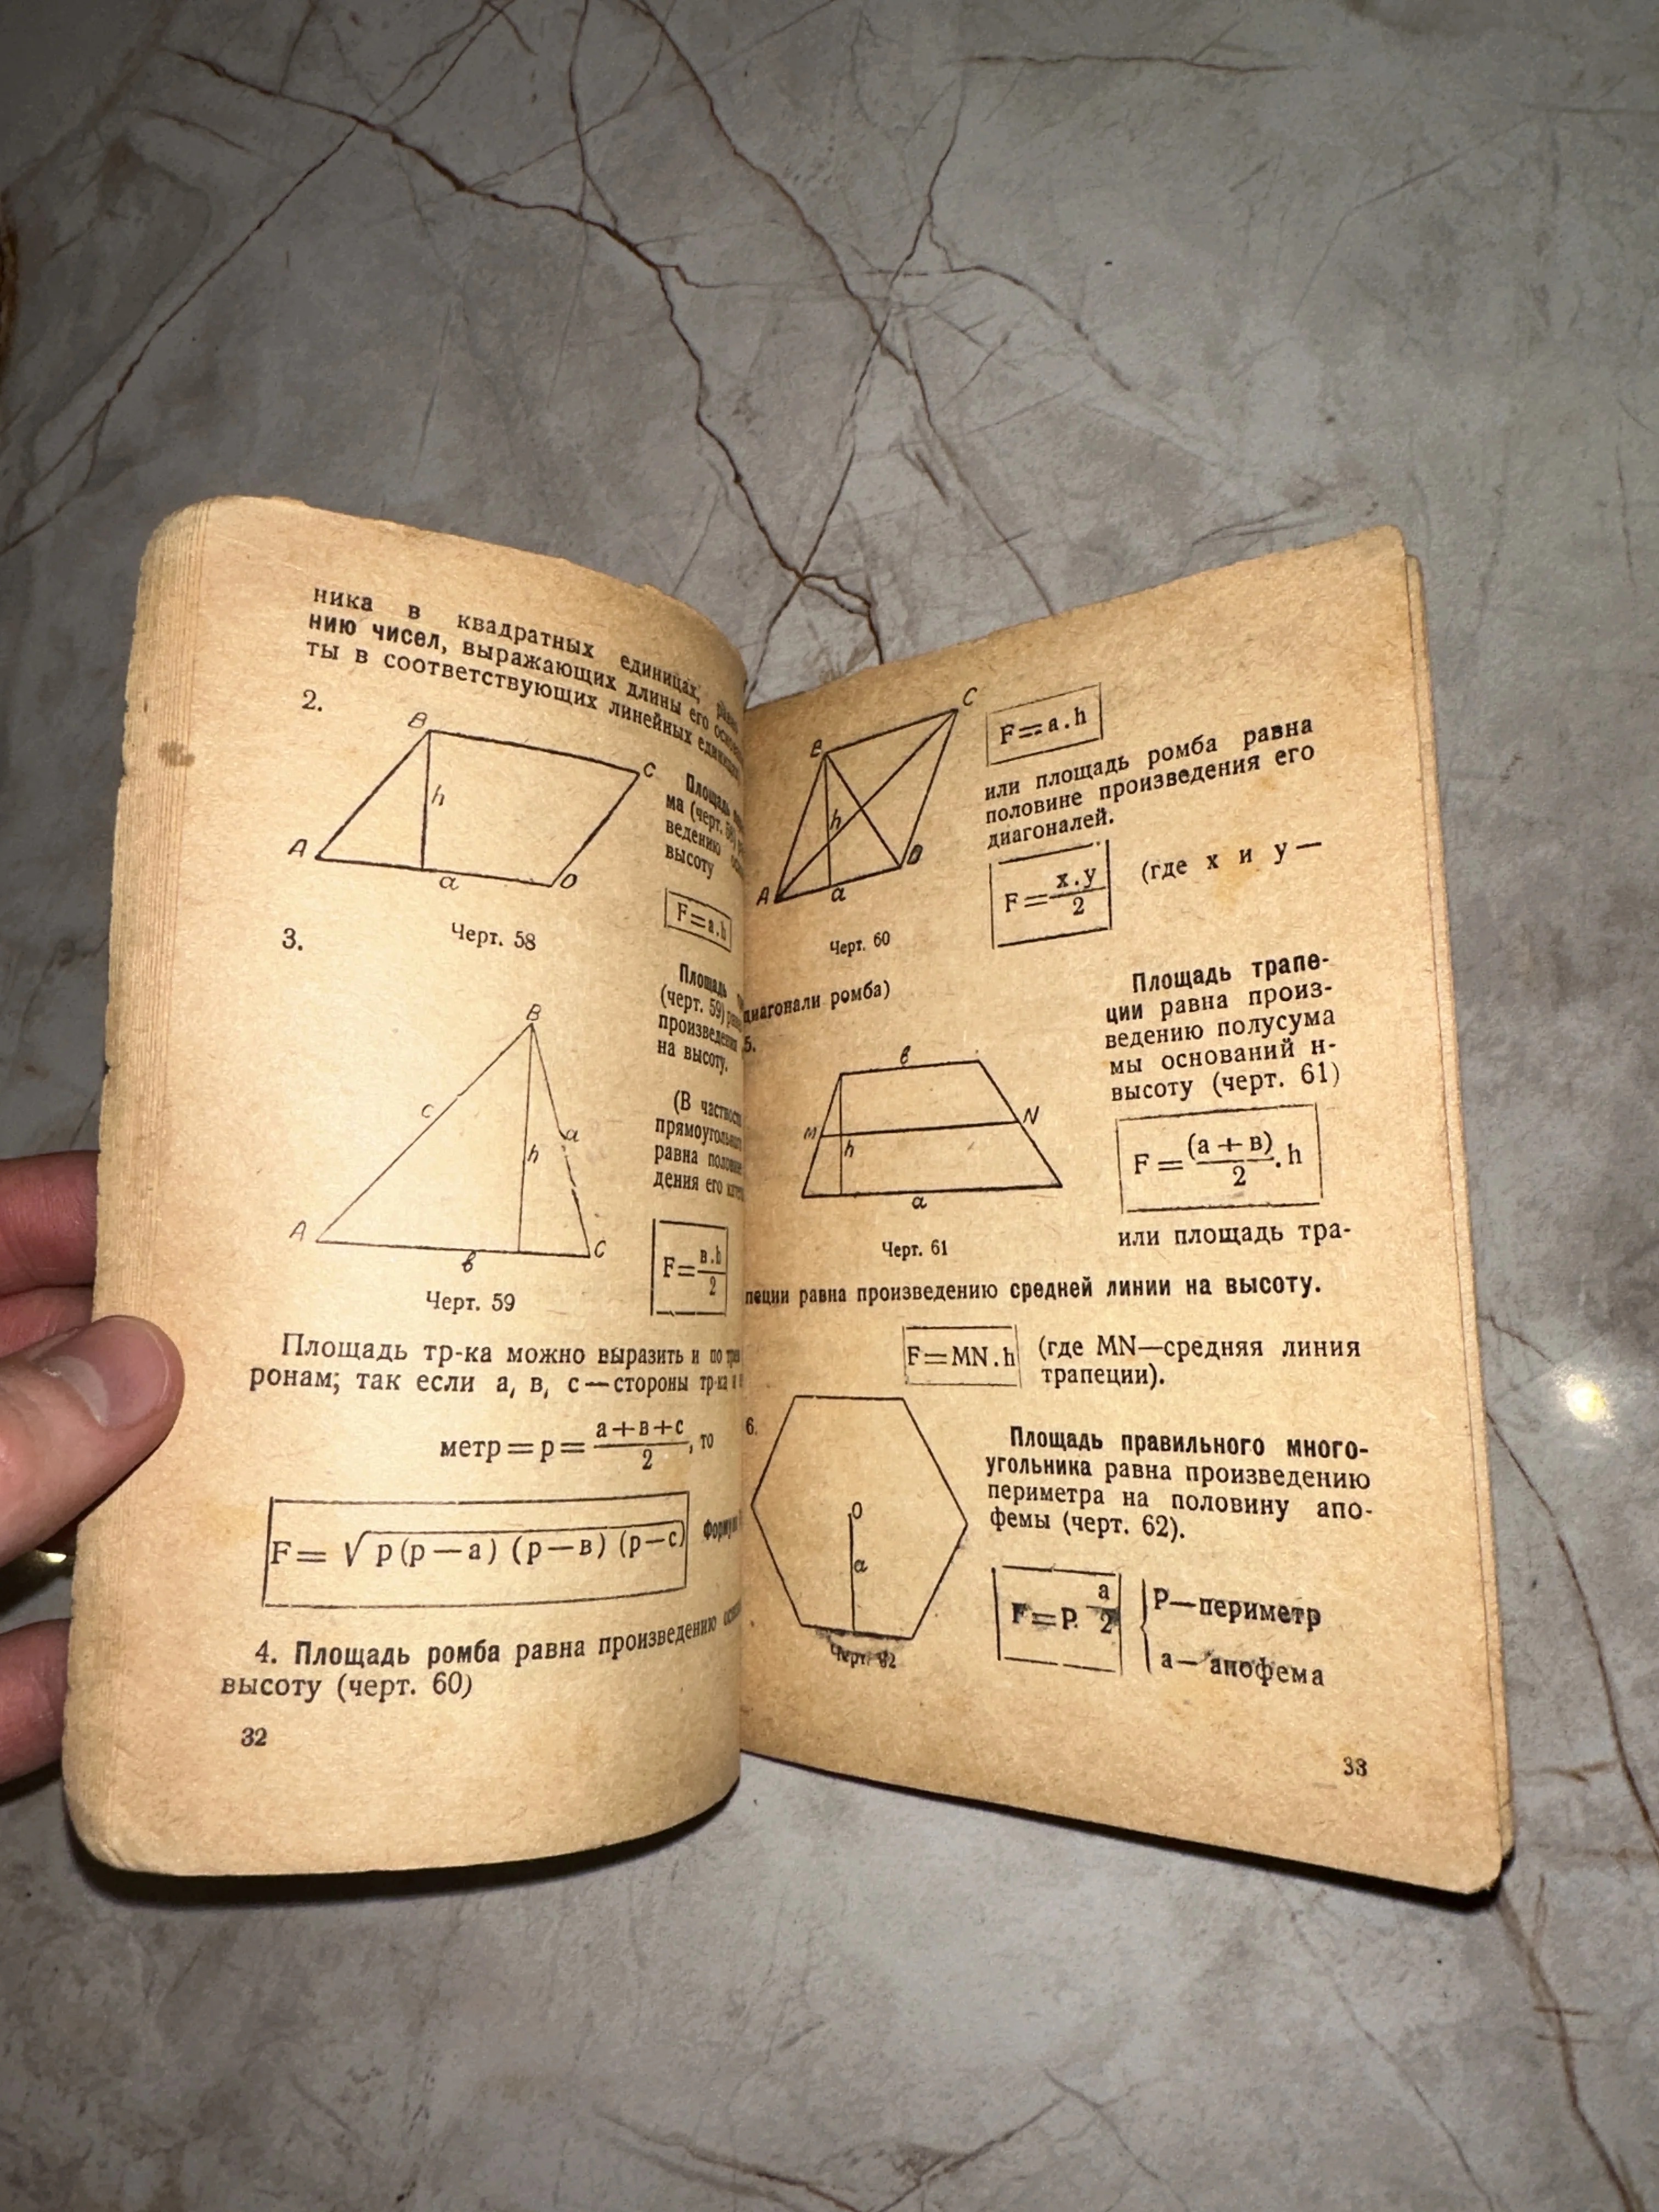 ника в квадратных единицах,
нию чисел, выражающих длины его
ты в соответствующих линейных
2.
B
C
h
A
a
D
Черт. 58
Площадь
ма (черт. 58)
ведению
высоту
F=a.h
3.
B
c
a
h
A
в
C
Черт. 59
Площадь
(черт. 59)
произведения
на высоту.
(В частности
равна
дения его
F=в.h/2
Площадь тр-ка можно выразить и по
ронам; так если а, в, с—стороны тр-ка и
метр=р=а+в+с/2, то
F=√p(p—a) (p—в) (p—c)
4. Площадь ромба равна произведению
высоту (черт. 60)
32
B
C
h
A
a
D
Черт. 60
F=a.h
или площадь ромба равна
половине произведения его
диагоналей.
F=x.y/2
(где х и у—
диагонали ромба)
5.
в
M
N
h
a
Черт. 61
Площадь трапе-
ции равна произ-
ведению полусума
мы оснований н-
высоту (черт. 61)
F=(а+в)/2.h
или площадь тра-
пеции равна произведению средней линии на высоту.
F=MN.h
(где MN—средняя линия
трапеции).
6.
O
a
Черт. 62
Площадь правильного много-
угольника равна произведению
периметра на половину апо-
фемы (черт. 62).
F=P. a/2
P—периметр
a—апофема
33